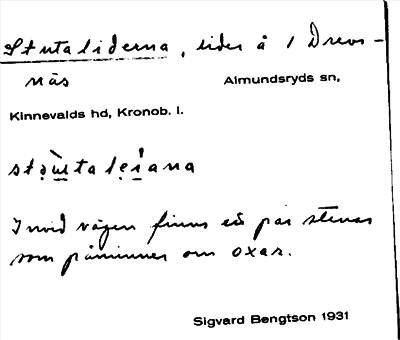 Stutaliderna, lider å 1 Drevs-
näs Almundsryds sn,
Kinnevalds hd, Kronob. l.
Invid vägen finns ett par stenar
som påminner om oxar.
Sigvard Bengtson 1931